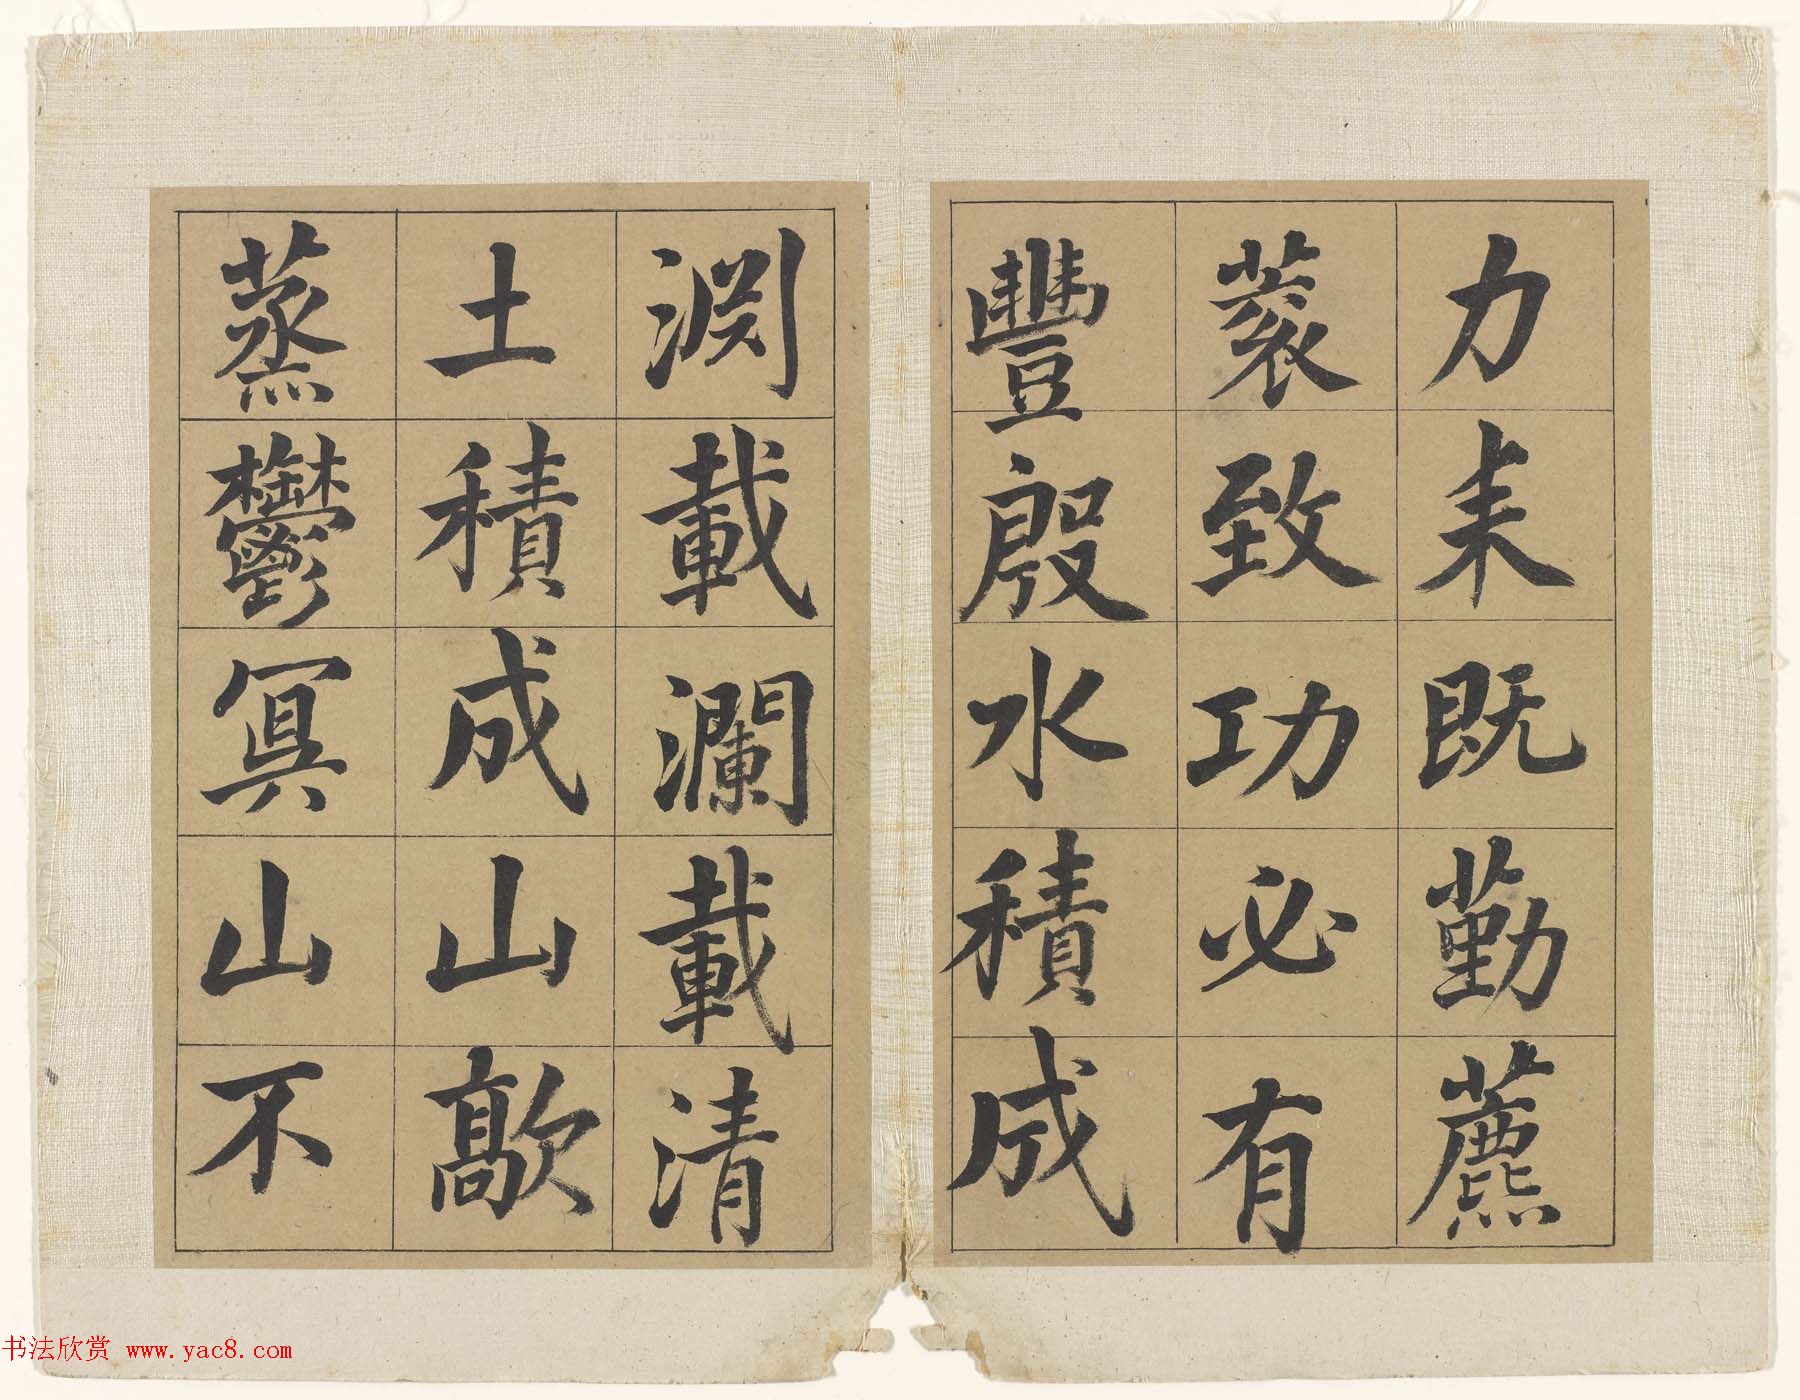 力耒既勤藨
蓘致功必有
豐殷水積成
淵載瀾載清
土積成山歊
蒸鬱冥山不
书法欣赏 www.yac8.com